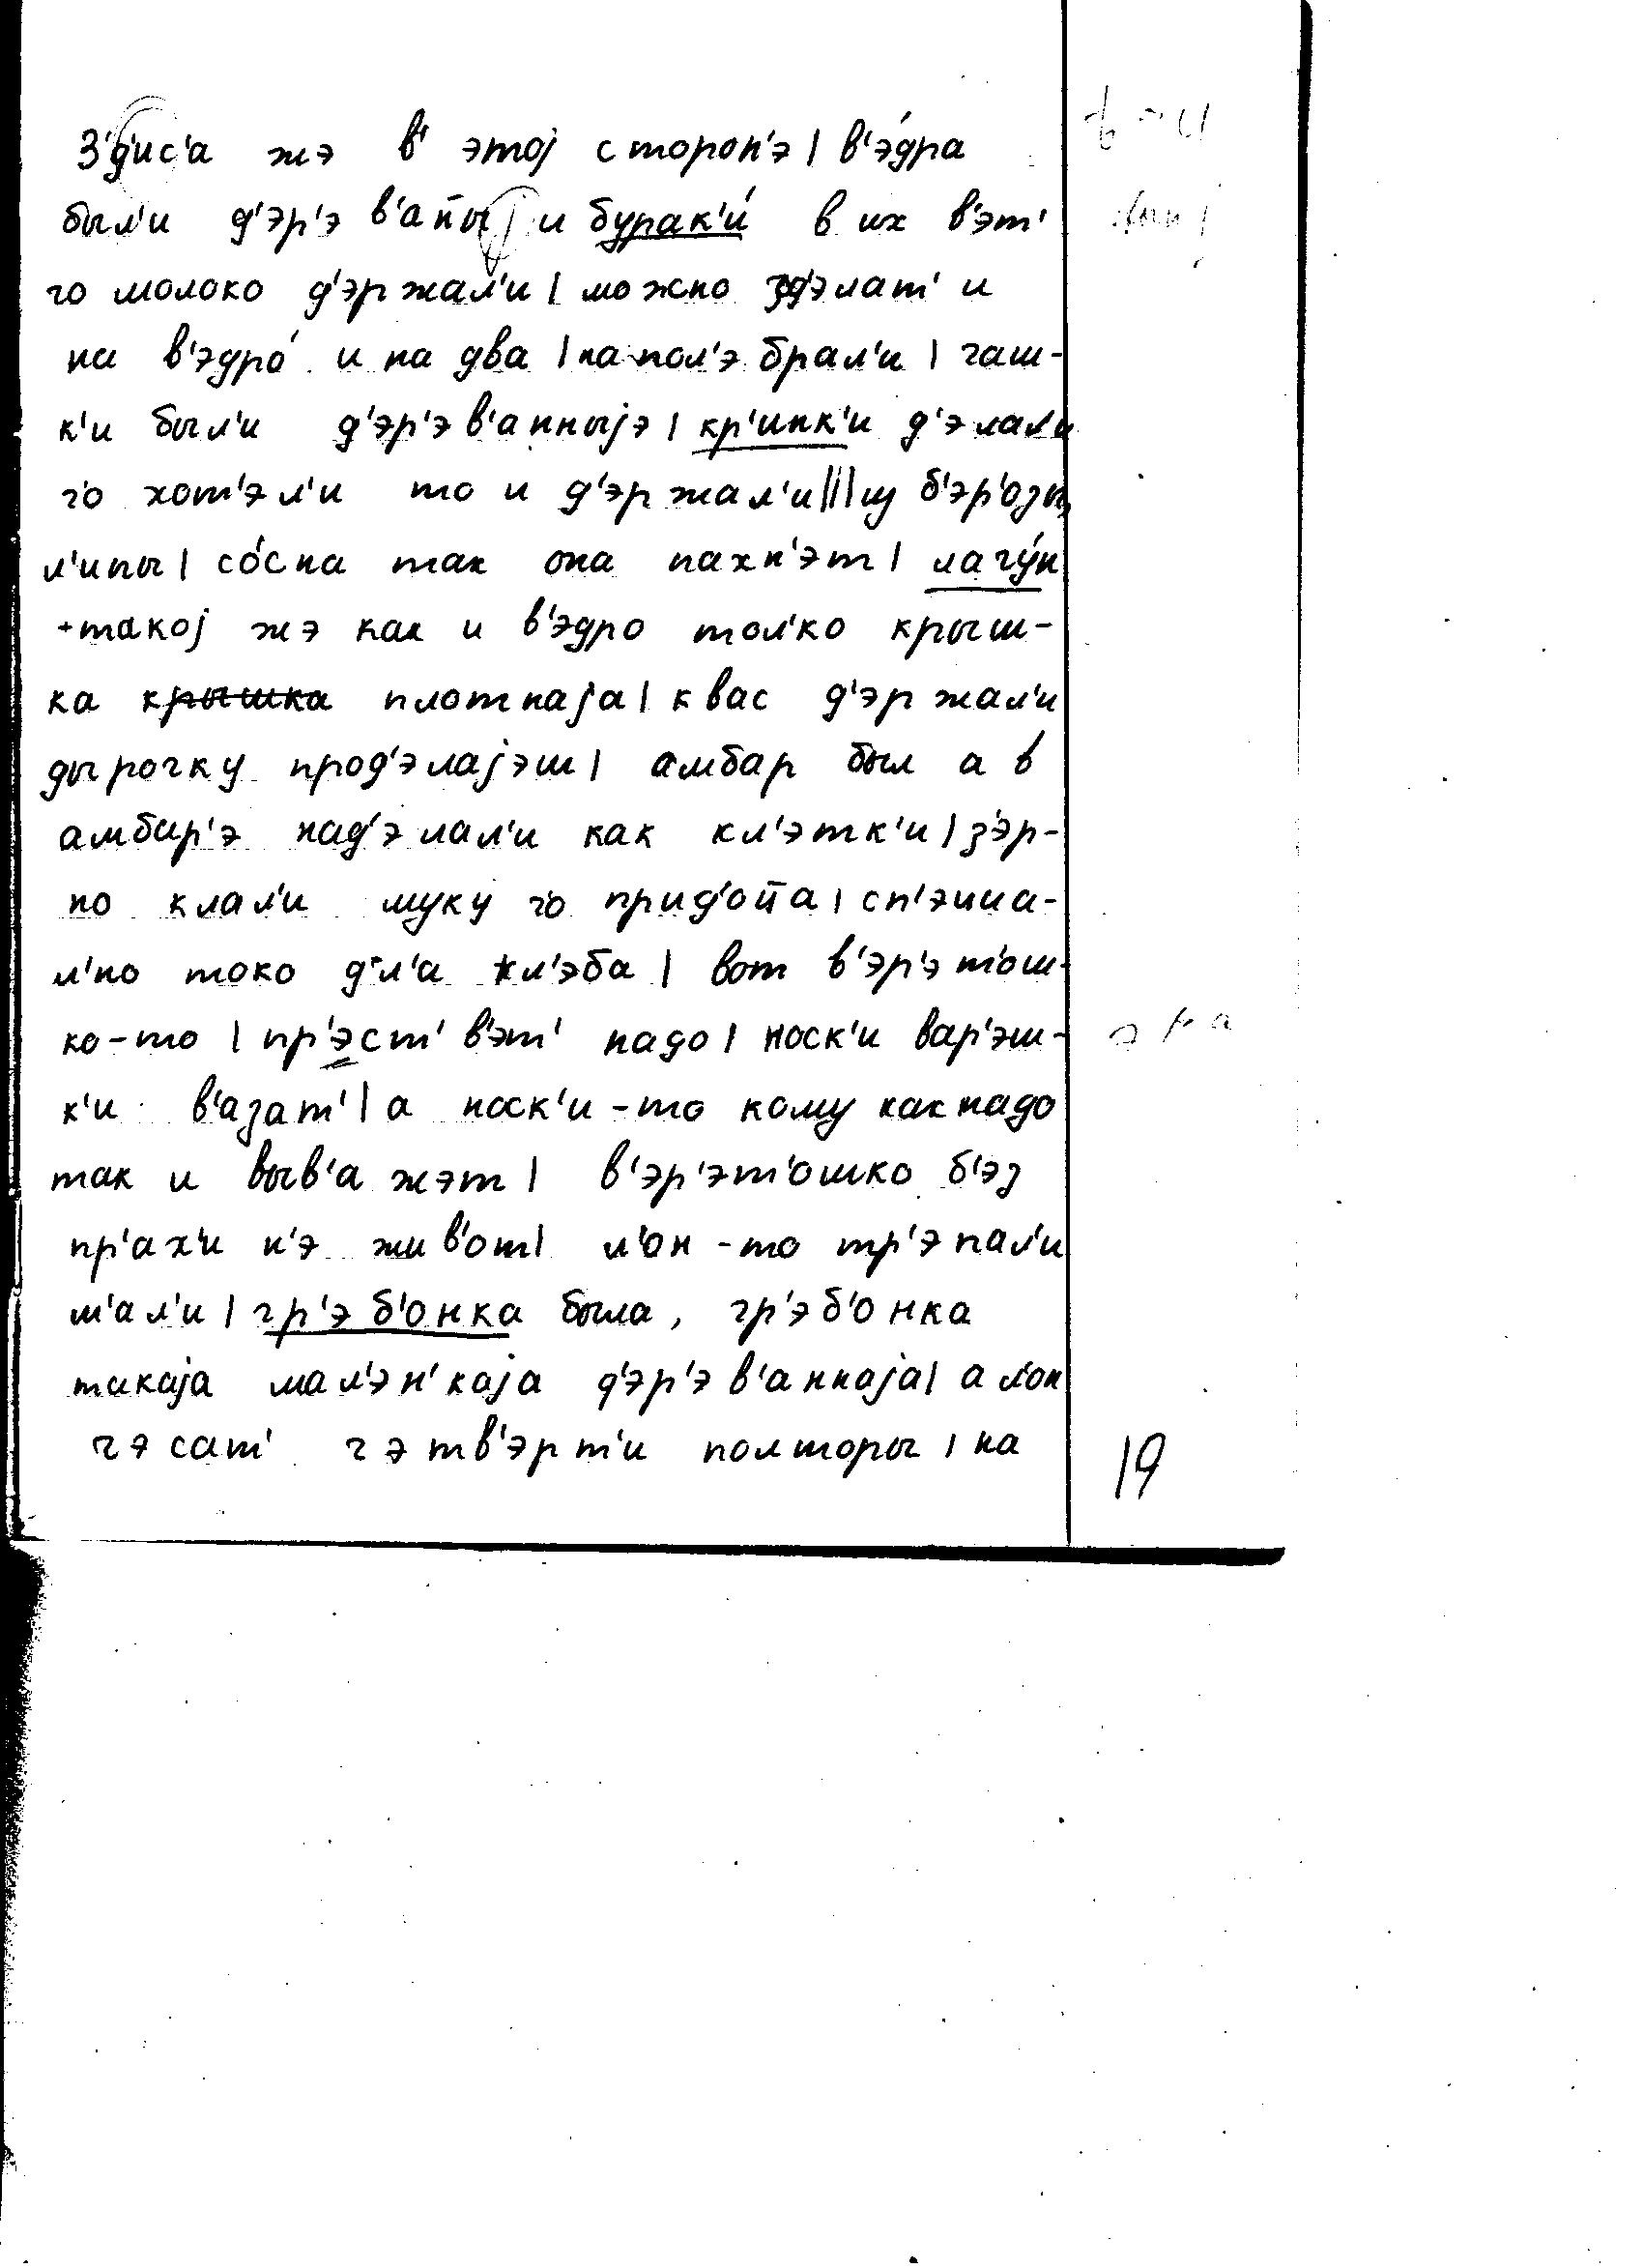 З'д'ис'а жэ в' этој сторон'э | в'э́дра
был'и д'эр'э в'ан̄ыј и бурак'и́ в их в'эт'
чо молоко д'эржал'и | можно зд'элат' и
на в'эдро́ и на два | на пол'э брал'и | чаш-
к'и был'и д'эр'э в'анныјэ | кр'инк'и д'элал'и
чо хот'эл'и то и д'эржал'и ||| из б'эр'озы,
л'ипы | со́сна так она пахн'эт | лагу́н
такој жэ как и в'эдро тол'ко крыш-
ка крышка плотнаја | квас д'эржал'и
дырочку прод'элајэш | амбар был а в
амбар'э над'элал'и как кл'этк'и | з'эр-
но клал'и муку чо прид'от̄а | сп'эциа-
л'но токо д'л'а хл'эба | вот в'эр'эт'ош-
ко-то | пр'эст' в'эт' надо | носк'и вар'эш-
к'и в'азат' | а носк'и-то кому как надо
так и выв'ажэт | в'эр'эт'ошко б'эз
пр'ах'и н'э жив'от | л'он-то тр'эпал'и
м'ал'и | гр'эб'онка была, гр'эб'онка
такаја мал'эн'каја д'эр'э в'аннаја | а л'он
чэсат' чэтв'эрт'и полторы | на
19